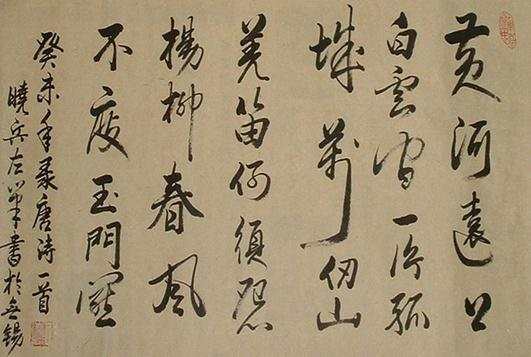 黄河遠上
白雲间一片孤
城萬仞山
羌笛何須怨
楊柳春風
不度玉門關
癸未年录唐詩一首
曉兵左筆書於無錫